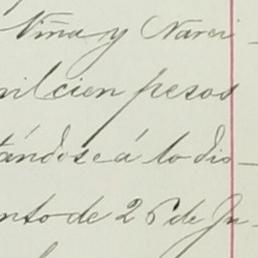 Niña y Narci-
mil cien pesos
tándose á lo dis-
nto de 26 de Ju-